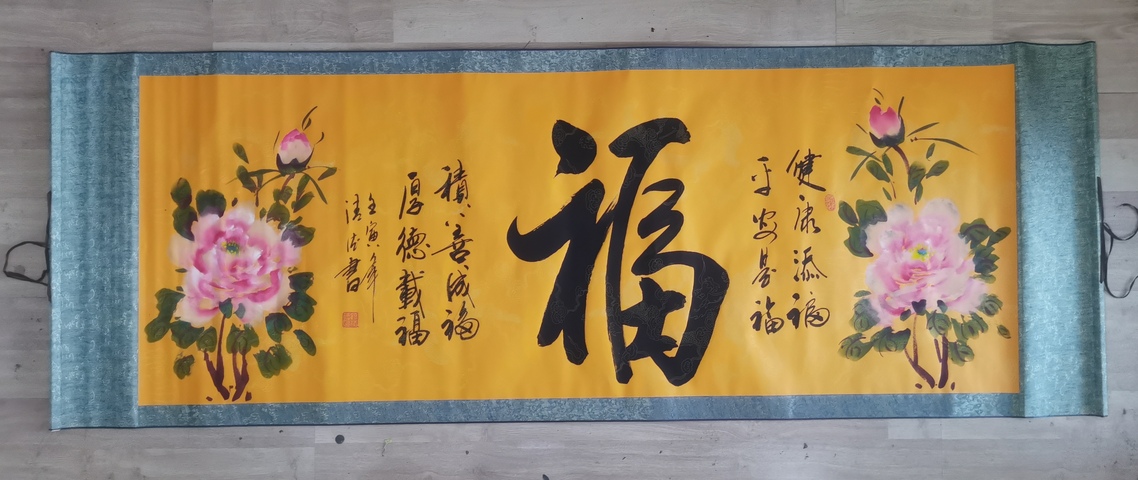 健康添福
平安是福
福
積善成福
厚德載福
壬寅年
書